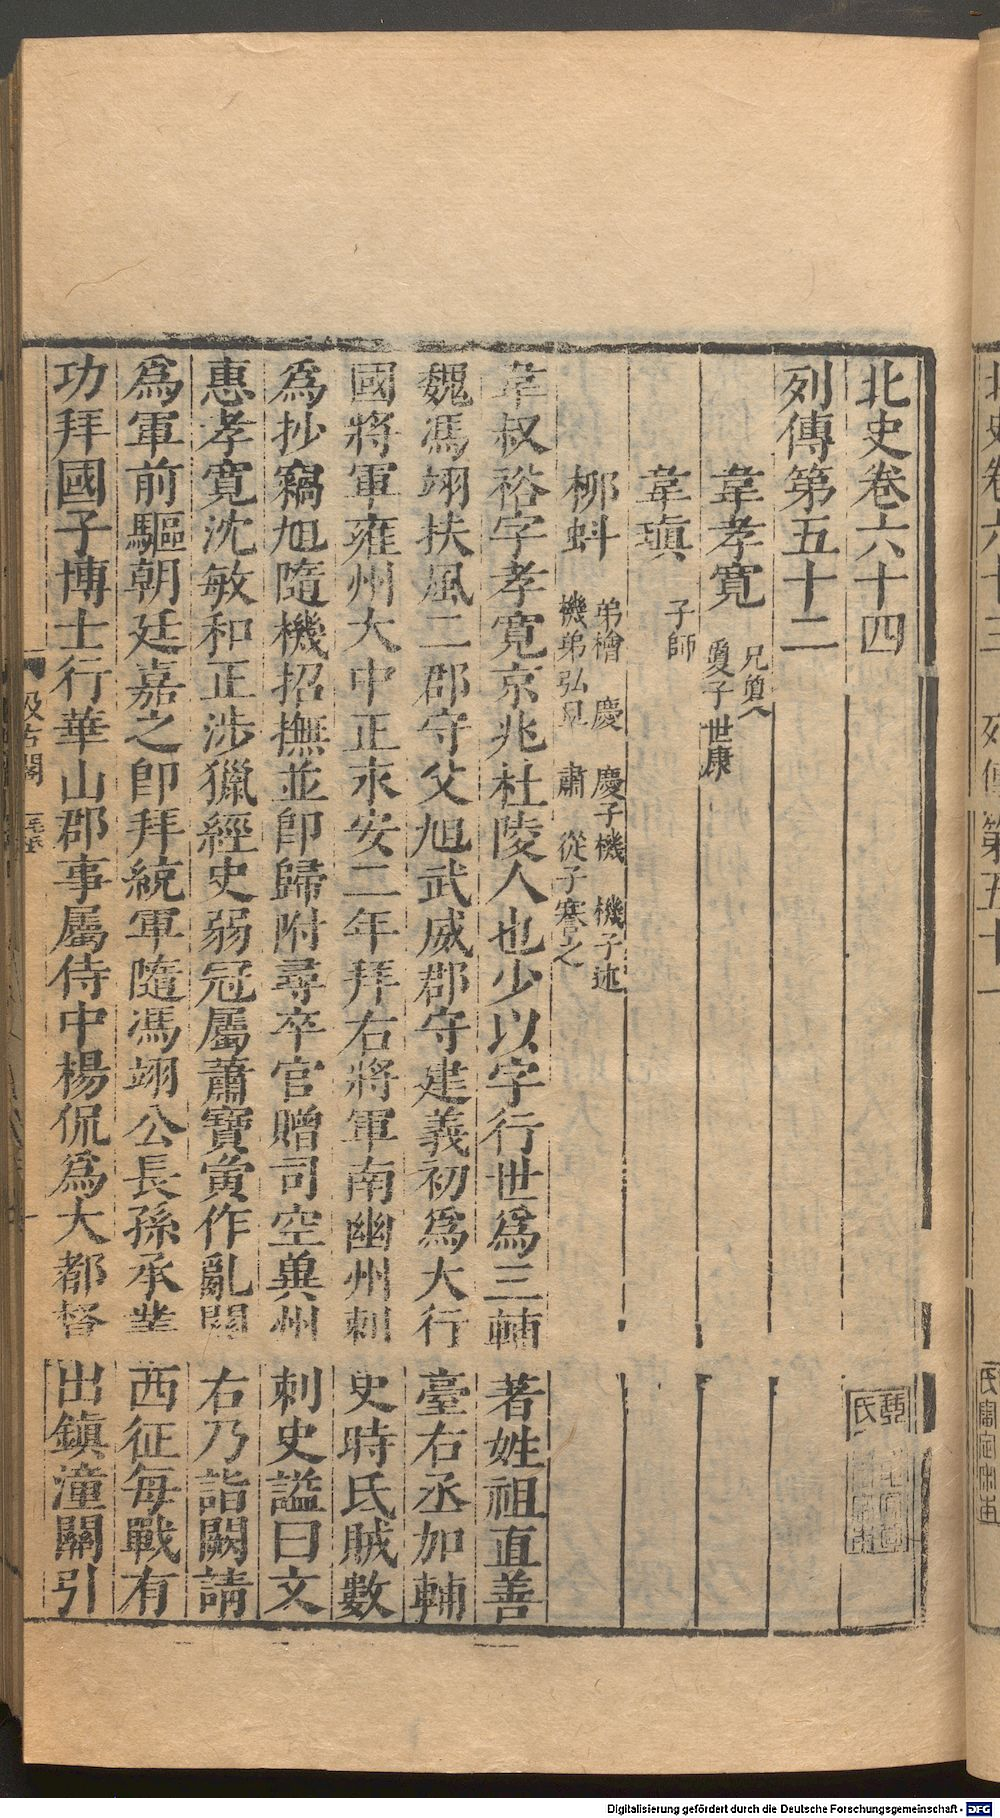 北史卷六十四
列傳第五十二
韋孝寬 兄敻
敻子世康
韋瑱 子師
柳蚪 弟檜 慶 慶子機 機子述
機弟弘旦 肅 從子謇之
韋叔裕字孝寬京兆杜陵人也少以字行世爲三輔著姓祖直善
魏馮翊扶風二郡守父旭武威郡守建義初爲大行臺右丞加輔
國將軍雍州大中正永安二年拜右將軍南幽州刺史時氐賊數
爲抄竊旭隨機招撫並卽歸附尋卒官贈司空兾州刺史謚曰文
惠孝寬沈敏和正涉獵經史弱冠屬蕭寶夤作亂關右乃詣闕請
爲軍前驅朝廷嘉之卽拜統軍隨馮翊公長孫承業西征每戰有
功拜國子博士行華山郡事屬侍中楊侃爲大都督出鎮潼關引
汲古閣
毛氏
Digitalisierung gefördert durch die Deutsche Forschungsgemeinschaft - DFG